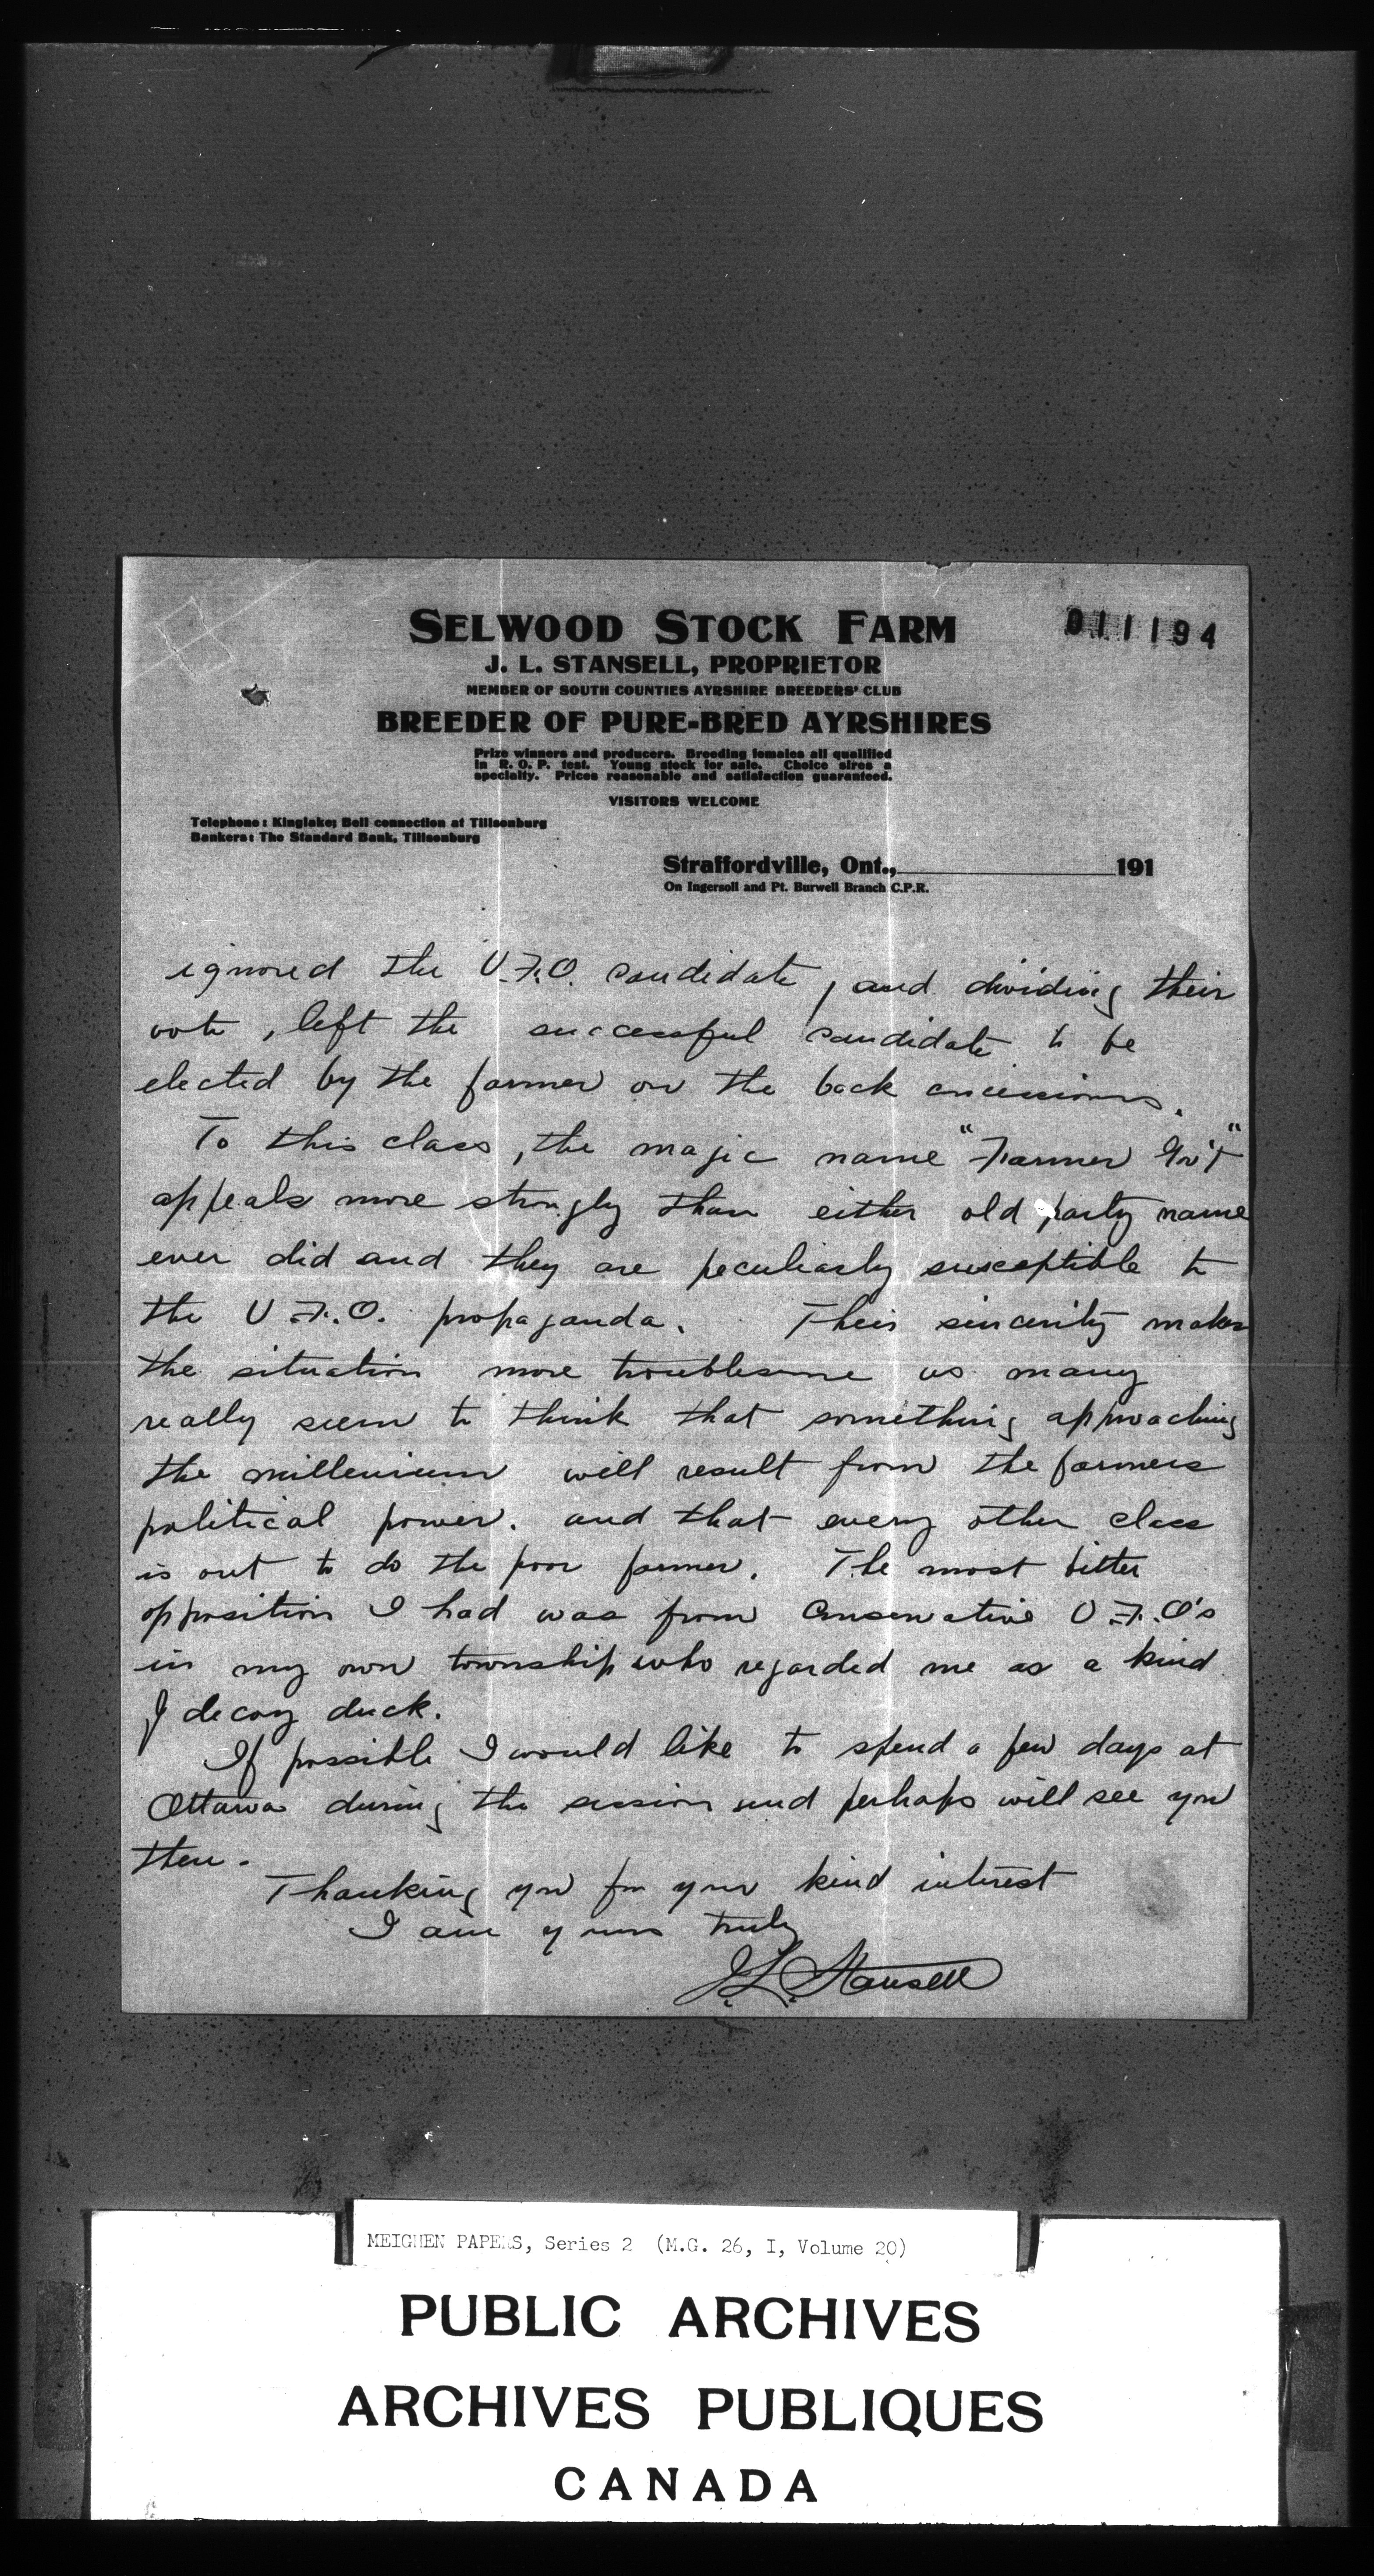 SELWOOD STOCK FARM
011194
J. L. STANSELL, PROPRIETOR
MEMBER OF SOUTH COUNTIES AYRSHIRE BREEDERS' CLUB
BREEDER OF PURE-BRED AYRSHIRES
Prize winners and producers. Breeding females all qualified
in R. O. P. test. Young stock for sale. Choice sires a
specialty. Prices reasonable and satisfaction guaranteed.
VISITORS WELCOME
Telephone: Kinglake; Bell connection at Tillsonburg
Bankers: The Standard Bank, Tillsonburg
Straffordville, Ont., 191
On Ingersoll and Pt. Burwell Branch C.P.R.
ignored the U.F.O. candidate, and dividing their
vote, left the successful candidate to be
elected by the farmer on the back concessions.
To this class, the magic name "Farmer Gov't"
appeals more strongly than either old party name
ever did and they are peculiarly susceptible to
the U.F.O. propaganda. Their sincerity makes
the situation more troublesome as many
really seem to think that something approaching
the millenium will result from the farmers
political power. and that every other class
is out to do the poor farmer. The most bitter
opposition I had was from Conservative U.F.O's
in my own township who regarded me as a kind
of decoy duck.
If possible I would like to spend a few days at
Ottawa during the session and perhaps will see you
then.
Thanking you for your kind interest
I am yours truly
J.L. Stansell
MEIGHEN PAPERS, Series 2 (M.G. 26, I, Volume 20)
PUBLIC ARCHIVES
ARCHIVES PUBLIQUES
CANADA